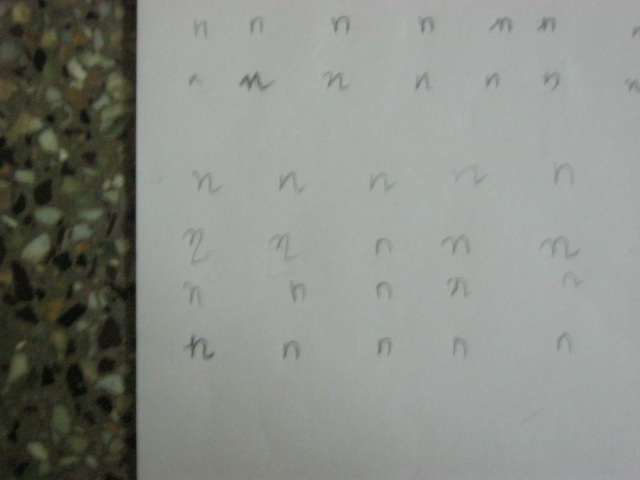 n n n n n n n
n n n n n n n
n n n n n
n n n n n
n n n n n
n n n n n